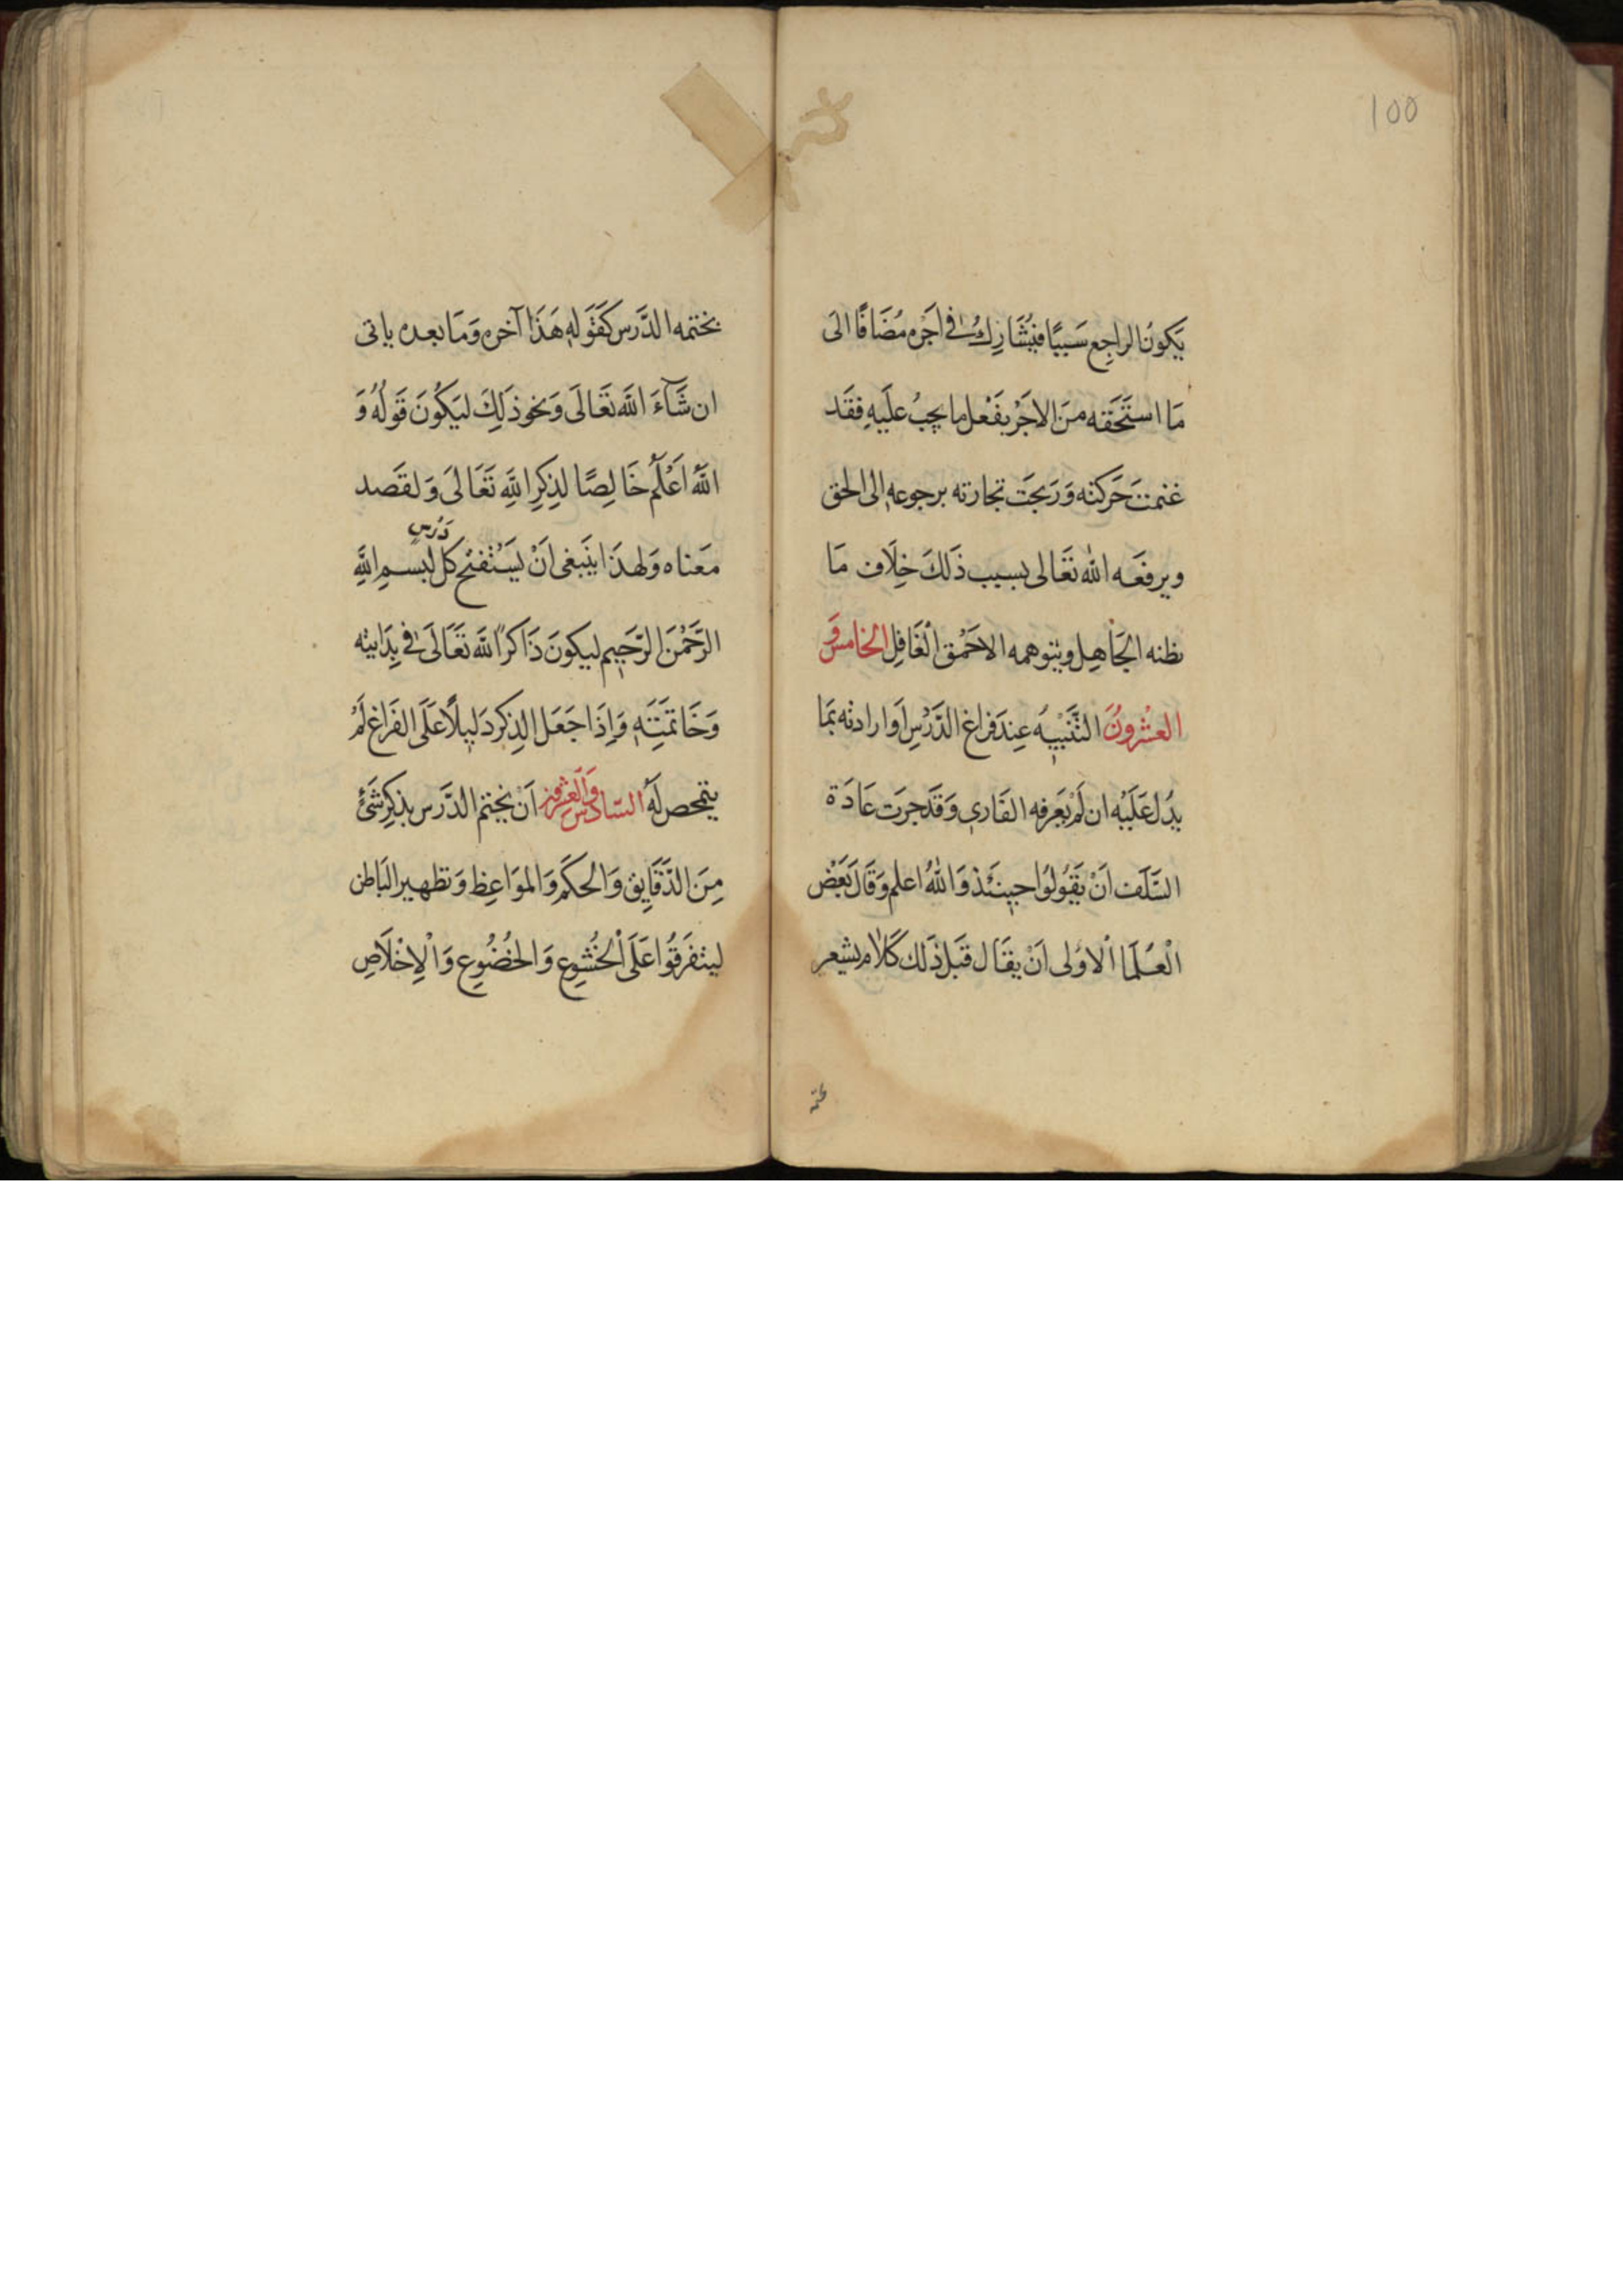 100
يَكونُ الراجِع سَببًا فيُشَارِكُ في اَجْره مُضَافًا الى
مَا استَحَقه مِنَ الاجَرْ بفَعْل ما يجِبُ علَيهِ فقَد
غنمتَ حَركته وَرَبحَتَ تجارته برجوعهِ الى الحق
ويرفعَه الله تعَالى بسبب ذَلكَ خِلَاف مَا
يظنه الجَاهِل ويتوهمه الاحَمْق الْغَافِل الخامس وَ
العشْرونَ التَّنَبْيهُ عِندَ فراغ الدَّرْسِ اَوارادته بمَا
يدُل عَلَيْه ان لَمْ يَعَرفه القَارى وَقَد جرَت عَادَة
السَّلَف اَنْ يَقَوُلوُا حِينَئذ وَاللهُ اعلم وَقَالَ بَعَض
الْعُلَمَا اْلاوُلى اَنْ يقَال قَبل ذَلك كَلَام يشعر
بختمه
بختمه الدَّرَس كَقَولهِ هَذَا آخره وَمَا بعده ياتى
ان شَآءَ اللَّه تعَالَى وَنحوَ ذلِكَ ليَكُونَ قَولُهُ وَ
اللَّهُ اَعْلَم خَالِصًا لذِكِرِ اللَّهِ تَعَالىَ وَلقَصد
مَعناه وَلهذَا ينَبغى اَنْ يَسَتْفتح كل دَرْس ببسـمِ اللَّهِ
الرَّحَمْنَ الرَّحَيِم ليكونَ ذَاكرًا للَّه تعَالَى في بِدَايته
وَخَاتمَتِهِ وَاِذَا جَعَل الذِكر دَليلًا عَلَى الفَراغ لَمْ
يتمحص لَهُ السّادس وَالعشرون اَنْ يختم الدَّرَس بذكِر شَئٍ
مِنَ الدَّقَايِق وَالحكَم وَالموَاعِظ وَتطهير البَاطن
ليتفَرقُوا عَلَى اْلخُشوُعِ وَالخضُوُعِ وَاْلاِخْلَاصِ